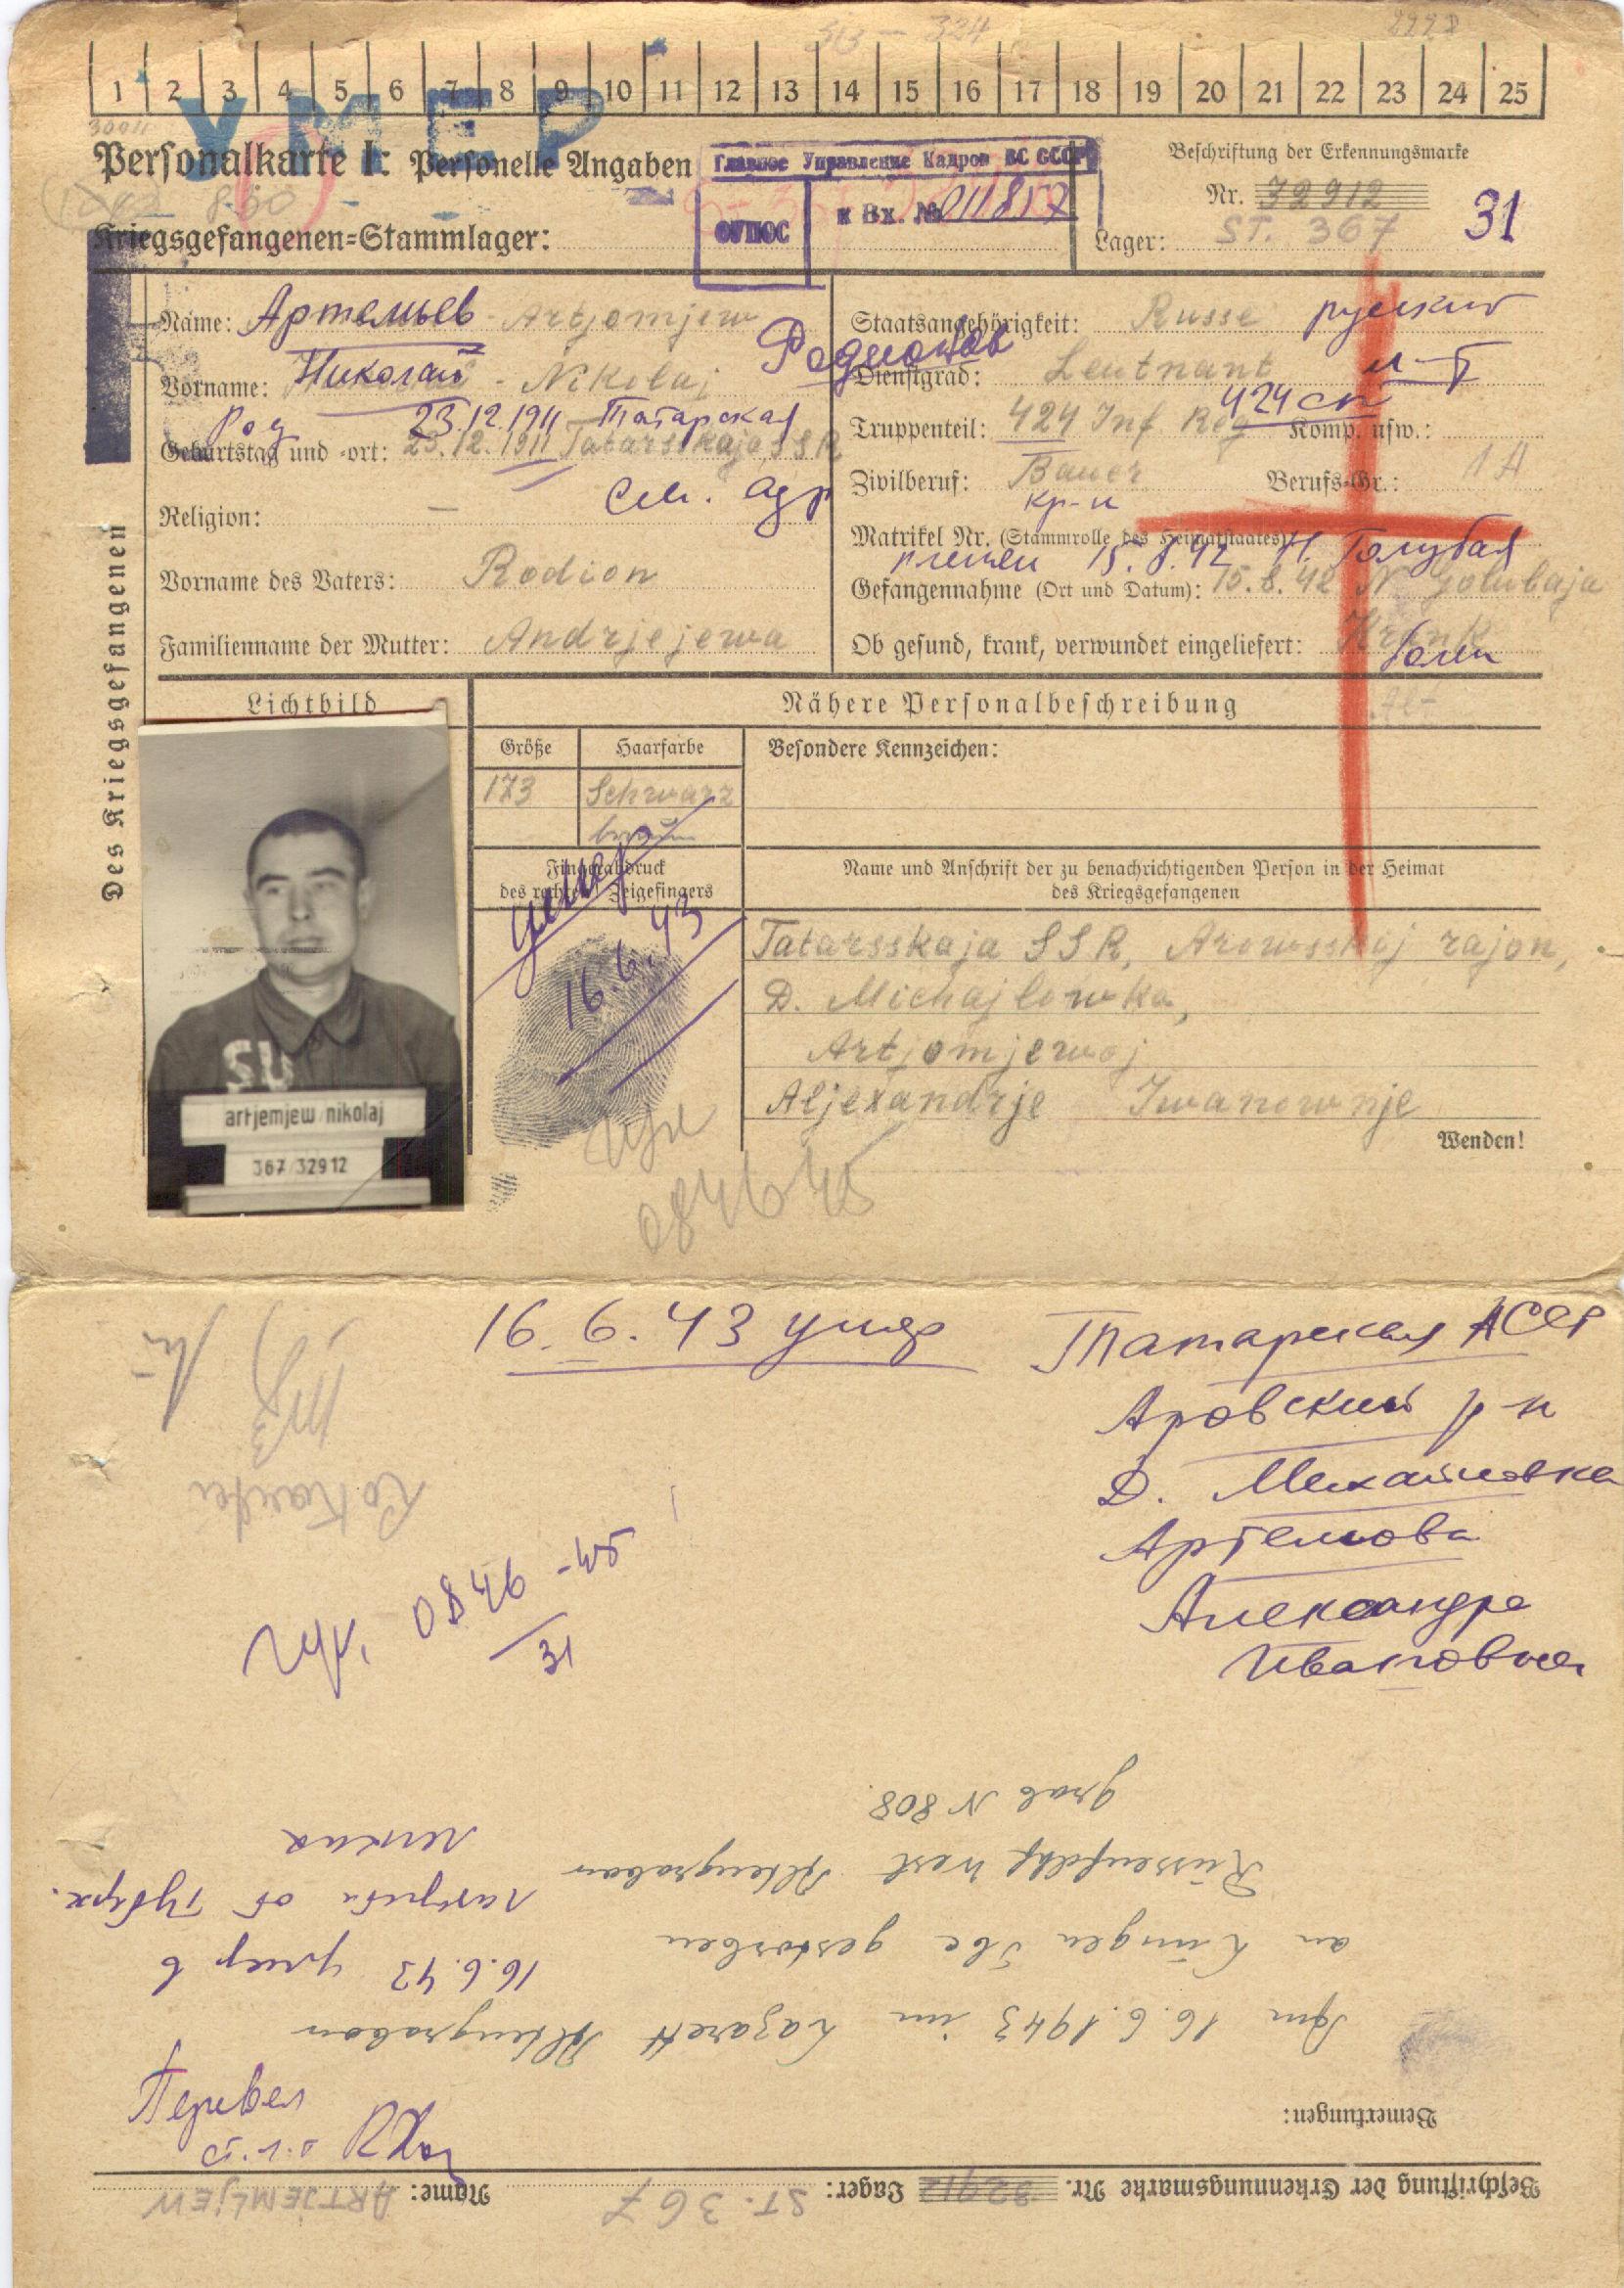 313 - 324
1 2 3 4 5 6 7 8 9 10 11 12 13 14 15 16 17 18 19 20 21 22 23 24 25
УМЕР
Personalkarte I: Personelle Angaben
Главное Управление Кадров ВС СССР
к Вх. № 011857
Beschriftung der Erkennungsmarke
Nr. 32912
31
Kriegsgefangenen=Stammlager:
Lager: ST. 367
Des Kriegsgefangenen
Name: Артемьев - Artjomjew
Родионов
Vorname: Николай - Nikolaj
Род 23.12.1911 Татарская
Geburtstag und -ort: 23.12.1911 Tatarsskaja SSR
См. адр
Religion: —
Vorname des Vaters: Rodion
Familienname der Mutter: Andrjejewa
Staatsangehörigkeit: Russe русский
Dienstgrad: Leutnant л-т
424 сп
Truppenteil: 424 Inf. Reg Komp. usw.:
Zivilberuf: Bauer Berufs-Gr.: 1A
кр-н
Matrikel Nr. (Stammrolle des Heimatstaates):
пленен 15.8.42 Н. Голубая
Gefangennahme (Ort und Datum): 15.8.42 N. Golubaja
Ob gesund, krank, verwundet eingeliefert: Krank
болен
Lichtbild
Nähere Personalbeschreibung
Größe Haarfarbe Besondere Kennzeichen:
173 Schwarz
Fingerabdruck
des rechten Zeigefingers
умер
16.6.43
Name und Anschrift der zu benachrichtigenden Person in der Heimat
des Kriegsgefangenen
Tatarsskaja SSR, Arowsskij rajon,
D. Michajlowka,
Artjomjewoj
Aljexandrje Iwanownje
Wenden!
SU
artjemjew nikolaj
367 32912
084645
16.6.43 умер
Татарская АССР
Аровский р-н
Д. Михайловка
Артемова
Александра
Ивановна
0846-45
31
Beschriftung der Erkennungsmarke Nr. 32912 Lager: ST. 367 Name: ARTJEMJEW
Bemerkungen:
Перевел
Am 16.6.1943 im Lazarett Altengrabow
an Lungen Tbc gestorben
Russenfdhf West Altengrabow
Grab N 808.
16.6.43 умер в
лазарете от туберк.
легких